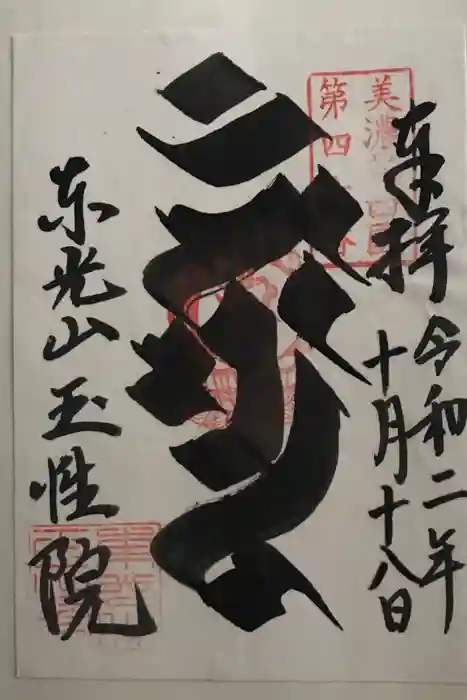 奉拝
令和二年
十月十八日
美濃
第四
東光山玉性院